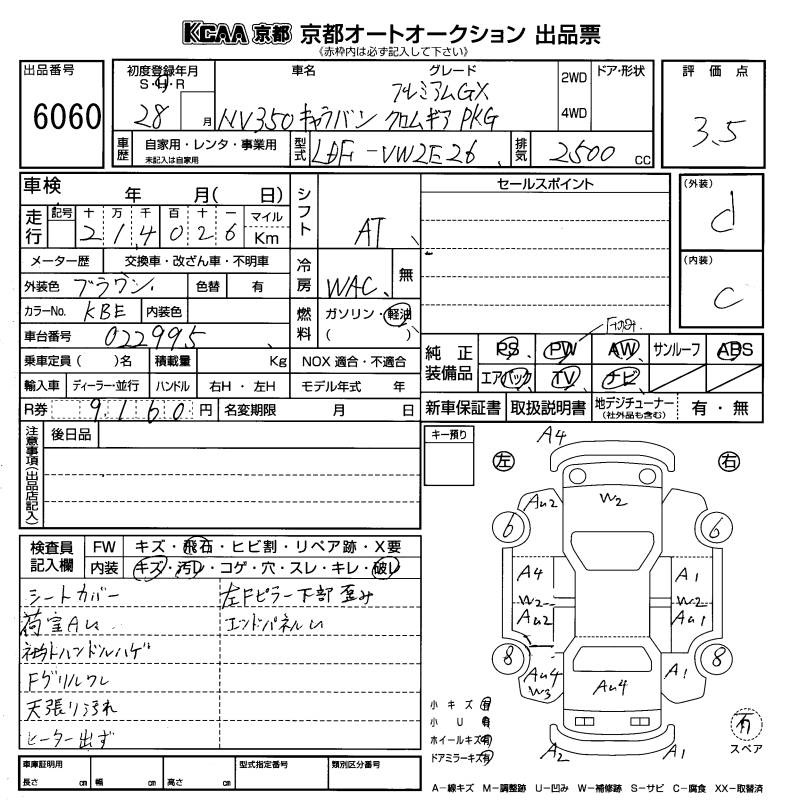 KCAA 京都 京都オートオークション 出品票
《赤枠内は必ず記入して下さい》
出品番号
6060
初度登録年月
S・H・R
28 月
車名
グレード
プレミアムGX
NV350 キャラバン クロムギア PKG
2WD
4WD
ドア・形状
評価点
3.5
車歴
自家用・レンタ・事業用
未記入は自家用
型式
LDF-VW2E26
排気
2500 CC
車検 年 月( 日)
走行
記号 十 万 千 百 十 一 マイル
2 1 4 0 2 6 Km
シフト
AT
セールスポイント
(外装)
d
(内装)
C
メーター歴 交換車・改ざん車・不明車
外装色 ブラウン 色替 有
冷房
WAC 無
カラーNo. KBE 内装色
燃料
ガソリン・軽油
( )
車台番号 022995
乗車定員( )名 積載量 Kg NOX 適合・不適合
輸入車 ディーラー・並行 ハンドル 右H・左H モデル年式 年
R券 9160円 名変期限 月 日
純正装備品
PS PW AW サンルーフ ABS
エアバック TV ナビ
新車保証書 取扱説明書 地デジチューナー
(社外品も含む)
有・無
注意事項(出品店記入)
後日品
キー預り
検査員記入欄
FW キズ・飛石・ヒビ割・リペア跡・X要
内装 キズ・汚レ・コゲ・穴・スレ・キレ・破レ
シートカバー
左Fピラー下部歪み
荷室AU
エンドパネルU
Fグリルワレ
天張り汚れ
ヒーター出ず
左
右
A4
AU2
W2
6
6
A4
W2
AU2
A1
W2
AU1
8
8
AU4
W3
AU4
A1
A2
A1
小キズ 有
小U 有
ホイールキズ 有
ドアミラーキズ 有
有
スペア
車庫証明用
長さ cm 幅 cm 高さ cm
型式指定番号
類別区分番号
A－線キズ M－調整跡 U－凹み W－補修跡 S－サビ C－腐食 XX－取替済